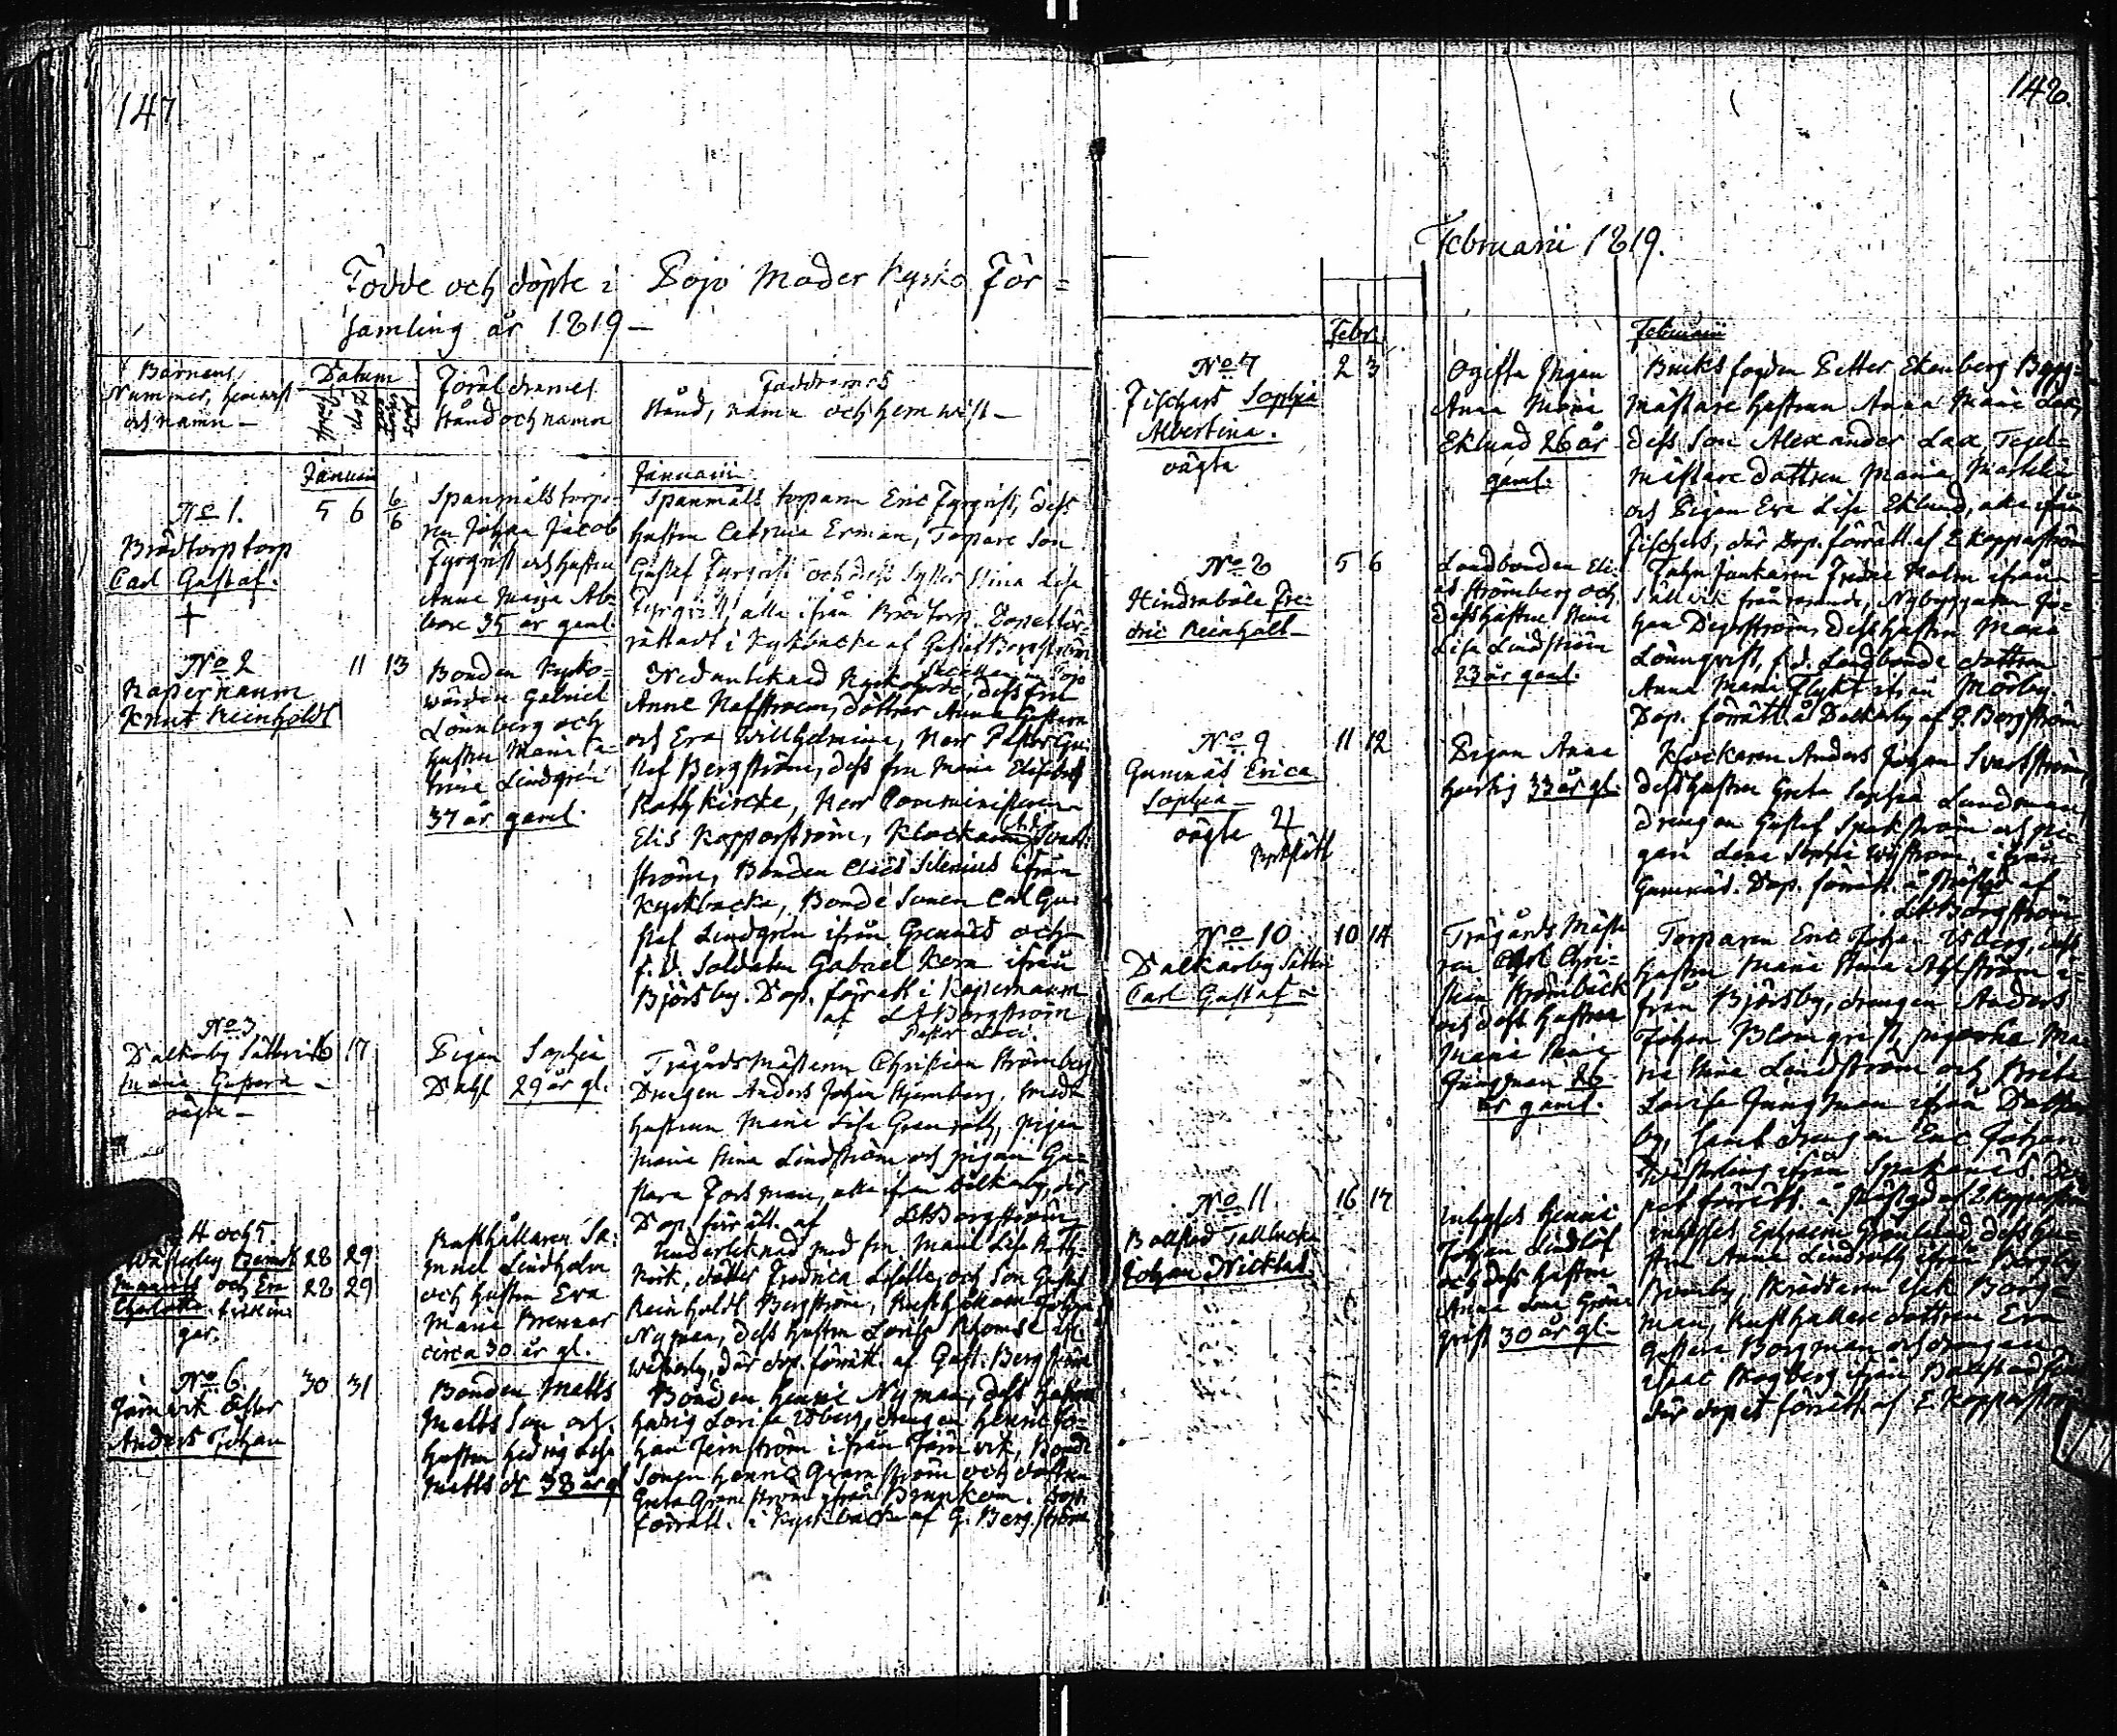 147
Födde och döpte i Pojo Moder Kyrko För=
samling år 1819 —
Barnens
Nummer, hemvist
och namn —
Datum
Föräldrarnes
Stånd och namn
Faddrarnes
stånd, namn och hemvist —
Januarii
No 1. 5 6 6/6
Brödtorp torp
Carl Gustaf.
Spanmåls torpa-
ren Johan Jacob
Fyrqvist och hustru
Anna Maja
35 år gaml
Januarii
Spanmåls torparn Eric Fyrqvist, dess
hustru Catrina Erman, Torpare Son
Gustaf Fyrqvist och dess Syster Stina Lisa
Fyrqvist, alla ifrån Brödtorp. Dopet för-
rättadt i Kyrkbacka af Gustaf Bergström
No 2 11 13
Kapernaum
Knut Reinholdt
Bonden Kyrko-
wärden Gabriel
Lönnberg och
hustru Maria Ca-
trina Lindgrén
37 år gaml.
Anna Hafström, döttrar Anna Gustava
och Eva Willhelmina, Herr Pastor Gu-
staf Bergström, dess fru Maria Elisabeth
Rothkircke, Herr Comministern
Elis Kopparström, Klockaren Svart-
ström, Bonden Elias Silenius ifrån
Kyrkbacka, Bonde Sonen Carl Gu-
staf Lindgrén ifrån Grennäs och
f. d. Soldaten Gabriel Kern ifrån
Björsby. Dop. förrätt i Kapernaum
af Bergström
Pastor Loci.
No 3 16 17
Dalkarby Sätteri
Maria Gustava —
oägta —
Pigan Sophia
Dahl 29 år gl.
Trägårds Mästaren Christian Strömberg
Drengen Anders Johan Hjernberg, smeds
hustrun Maria Lisa Granroth, pigan
Maria Stina Lindström och pigan Gu-
stava Forsman, alla ifrån Dalkarby, där
Dop. förrätt. af Bergström
4 och 5.
Wästerby Berndt 28 29
Mauritz och Eva 28 29
Charlotta tvillin-
gar.
Rusthållaren Sa-
muel Lindholm
och hustru Eva
Maria Brenner
circa 30 år gl.
Undertecknad med fru Maria Lisa Roth-
kirk, dotter Fredrica Lisette och Son Gustaf
Reinholdt Bergström, Rusthållaren Johan
Nyman, dess hustru Lovisa
Wästerby, där dop. förrätt. af Gust. Bergström
No 6 30 31
Järnvik Öster
Anders Johan
Bonden Matts
Matts Son och
hustru Hedvig Lisa
Matts dr 38 år gl
Bonden Henric Nyman, dess hustru
Hedvig Lovisa Edberg, drengen Henric Jo-
han Jernström ifrån Järnvik, Bonde
Sonen Henric Granström och dottren
Greta Granström ifrån Brunkom. Dop.
förrätt. i Kyrkbacka af G. Bergström
148.
Februarii 1819.
Febr.
Februarii
No 7 2 3
Fischars Sophia
Albertina.
oägta
Ogifta Pigan
Anna Maria
Eklund 26 år
gaml.
Bruksfogden Petter Ekenberg Bygg-
mästare hustrun Anna Maria Lax,
dess Son Alexander Lax, Tegel-
mästare dottren Maria
och Pigan Eva Lisa Eklund, alla ifrån
Fischars, där Dop. förrätt. af E Kopparström
No 8 5 6
Hindraböle Fre-
dric Reinholt —
Landbonden Eli-
as Strömberg och
dess hustru Stina
Lisa Lindström
23 år gaml.
Fahnjunkaren Fredric Holm ifrån
frånvarande, Nybyggaren Jo-
han Degerström, dess hustru Maria
Lönnqvist, f. d. Landbonde dottren
Anna Maria Flykt ifrån Mörby.
Dop. förrätt. å Dalkarby af G. Bergström
No 9 11 12
Gumnäs Erica
Sophia —
oägta
Pigan Anna
33 år gl.
Klockaren Anders Johan Svartström,
dess hustru Greta Sophia Lundman,
drengen Gustaf Spakström och pi-
gan Lena Sophia Nyström, ifrån
Gumnäs. Dop. förrätt. å Prästgd af
Bergström
No 10 10 14
Dalkarby Sätteri
Carl Gustaf —
Trägårds Mästa
ren Carl Chri-
stian Strömbäck
och dess hustru
Maria Stina
Jungman 26
år gaml.
Torparen Eric Johan Edberg, dess
hustru Maria Stina Ahlström i-
från Björsby, drengen Anders
Johan Blomqvist, Ma-
ria Stina Lindström och Brita
Lovisa Jungman ifrån Dalkar
by, samt drengen Eric Johan
ifrån Spakanäs. Do-
pet förrätt. å Prästgd af E Kopparström
No 11 16 17
Bollstad Tallbacka
Johan Nicklas
Inhyses Henric
Johan Lindlöf
och dess hustru
Anna Lena Grön-
qvist 30 år gl —
Inhyses Ephraim Grönblad, dess hu-
stru Anna Lindroth ifrån Bergby
Bonnby, Skräddaren Isak Borg-
man, Rusthållare dottren Eva
Gustava Borgman och drengen
Isaac Skogberg ifrån Bollstad
där dopet förrätt. af E Kopparström